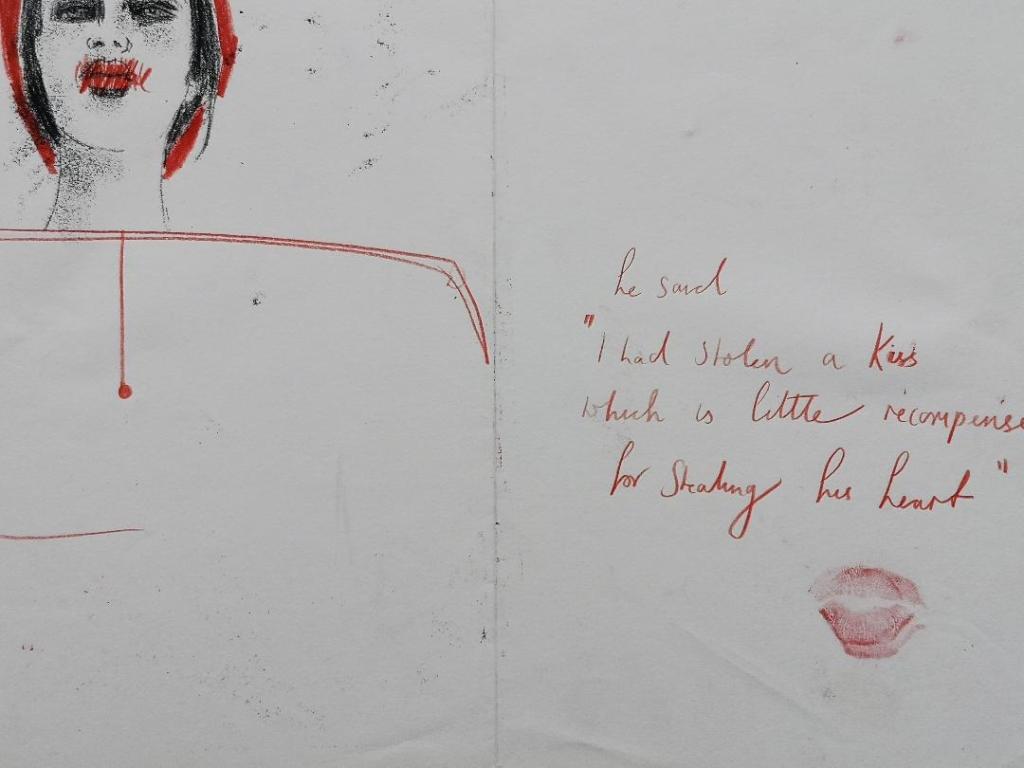 he said
"I had stolen a Kiss
which is little recompense
for stealing his heart"